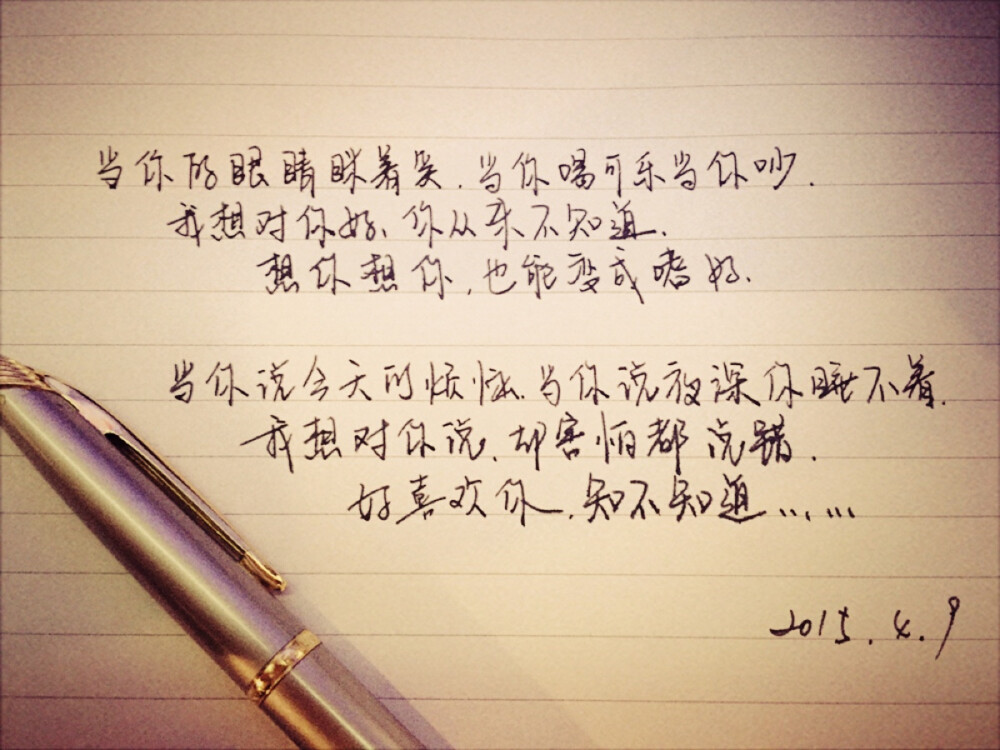 当你的眼睛眯着笑.当你喝可乐当你吵.
我想对你好、你从来不知道.
想你想你,也能变成嗜好.
当你说今天的烦恼.当你说夜深你睡不着.
我想对你说、却害怕都说错.
好喜欢你,知不知道……
2015.4.9